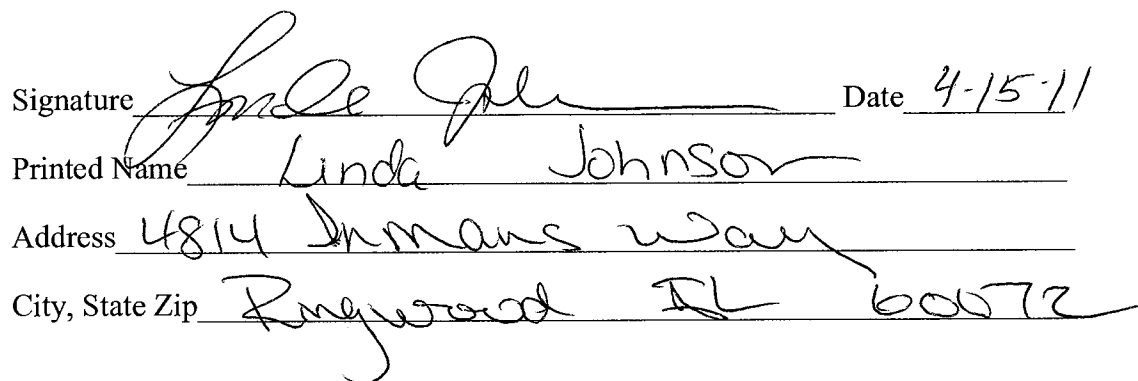 Signature Linda Joh Date 4-15-11
Printed Name Linda Johnson
Address 4814 Inmans Way
City, State Zip Ringwood IL 60072